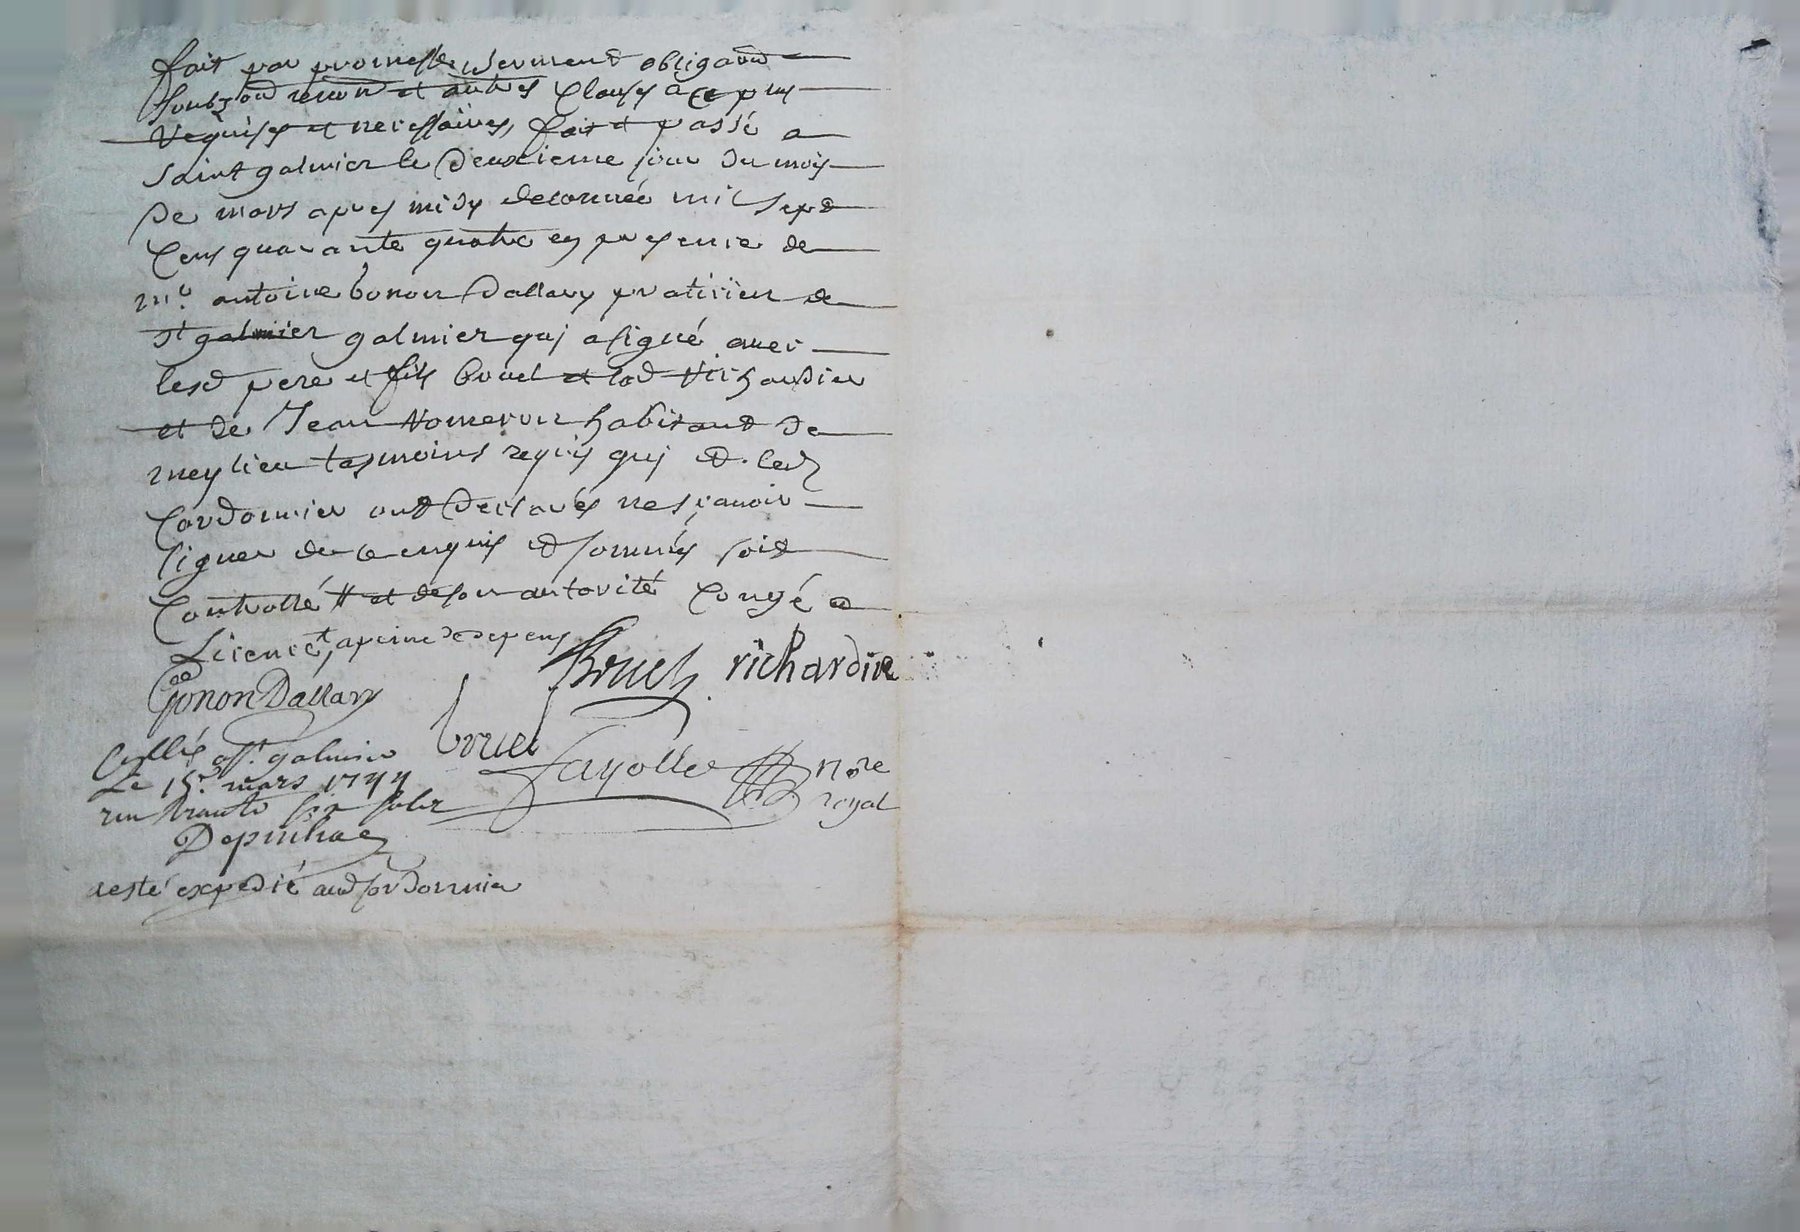 fait par promesse, serment obligaon
soubz on renon et autres clauses a ce plus
requises et necessaires, fait et passé a
saint galmier le deuxieme jour du mois
de mars apres midy de lannée mil sept
cens quarante quatre en presence de
me. antoine Gonon Dallary praticien de
st galmier galmier qui a signé avec
lesd pere et fils bruel et lad Richardier
et de Jean habitant de
meylieu tesmoins requis qui et led
cordonnier ont declarés ne sçavoir
signer de ce enquis et sommés soit
controllé # et de son autorité congé et
Licence, a peine de depens
Gonon Dallary
Bruel richardier
bruel
Cllé a st. galmier
Le 15e. mars 1744
reçu trante six sols
Depinhac
Fayolle nore
royal
resté expedié aud Cordonnier